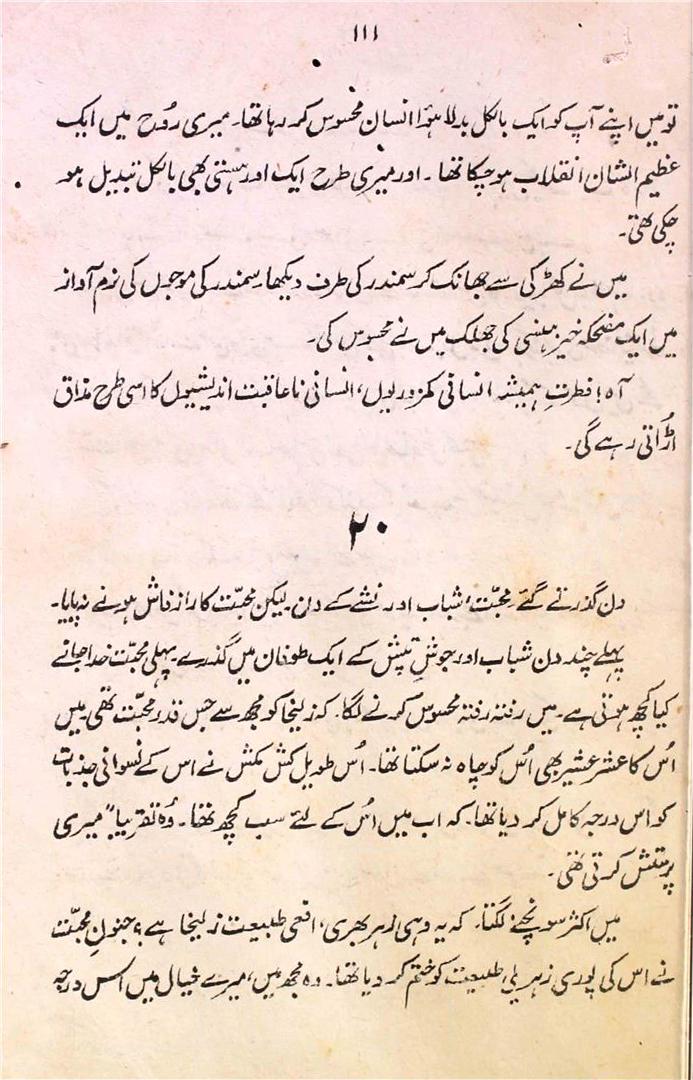 ۱۱۱
تو میں اپنے آپ کو ایک بالکل بدلا ہؤا انسان محسوس کر رہا تھا۔ میری رُوح میں ایک
عظیم الشان انقلاب ہو چکا تھا ۔ اور میری طرح ایک اور ہستی بھی بالکل تبدیل ہو
چکی تھی۔
میں نے کھڑکی سے جھانک کر سمندر کی طرف دیکھا۔ سمندر کی موجوں کی نرم آواز
میں ایک مضحکہ خیز ہنسی کی جھلک میں نے محسوس کی۔
آہ! فطرت ہمیشہ انسانی کمزوریوں، انسانی ناعاقبت اندیشیوں کا اسی طرح مذاق
اُڑاتی رہے گی۔
۲۰
دن گذرتے گئے۔ محبّت، شباب اور نشے کے دن۔ لیکن محبّت کا راز فاش ہونے نہ پایا۔
پہلے چند دن شباب اور جوشِ تپش کے ایک طوفان میں گذرے۔ پہلی محبّت خدا جانے
کیا کچھ ہوتی ہے۔ میں رفتہ رفتہ محسوس کرنے لگا۔ کہ زلیخا کو مجھ سے جس قدر محبّت تھی۔ میں
اُس کا عشر عشیر بھی اُس کو چاہ نہ سکتا تھا۔ اُس طویل کش مکش نے اس کے نسوانی جذبات
کو اس درجہ کامل کر دیا تھا۔ کہ اب میں اُس کے لئے سب کچھ تھا۔ وُہ تقریباً میری
پرستش کرتی تھی۔
میں اکثر سوچنے لگتا۔ کہ یہ وہی زہر بھری، افعی طبیعت زلیخا ہے؟ جنونِ محبّت
نے اس کی پوری زہریلی طبیعت کو ختم کر دیا تھا۔ وہ مجھ میں، میرے خیال میں اس درجہ